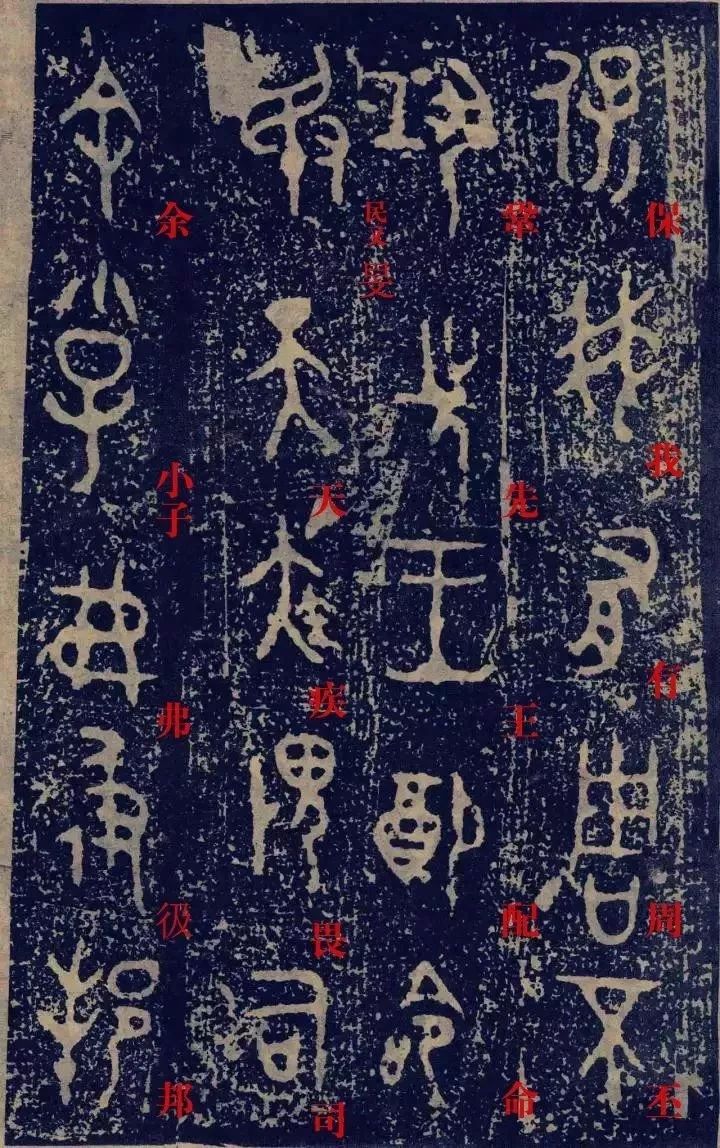 保我有周丕
鞏先王配命
民攵旻天疾畏司
余小子弗彶邦